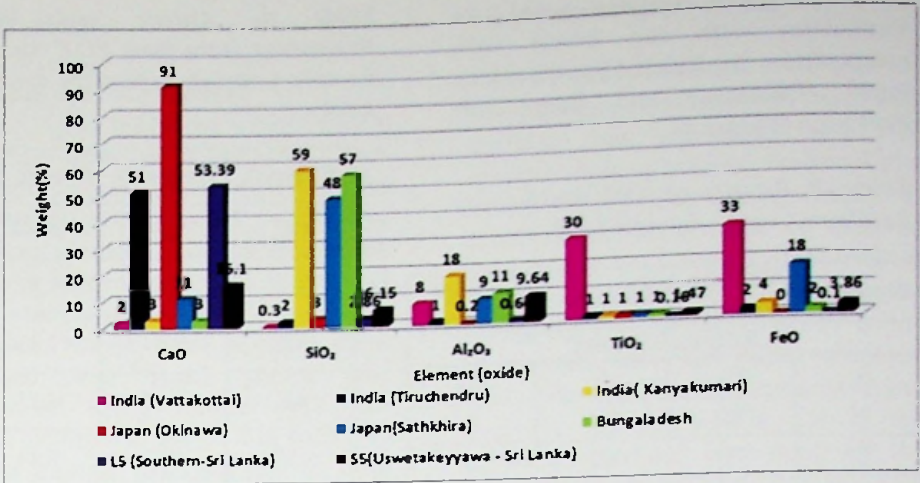 100
90
80
70
60
50
40
30
20
10
0
Weight(%)
2 51 3 91 11 3 53.39
0.3 2 59 3 48 57 2.86 6.15
8 1 18 0.2 9 11 0.6 9.64
30 1 1 1 1
33 2 4 0 18 2 0.1 3.86
CaO SiO₂ Al₂O₃ TiO₂ FeO
Element (oxide)
India (Vattakottai) India (Tiruchendru) India( Kanyakumari)
Japan (Okinawa) Japan(Sathkhira) Bungaladesh
LS (Southern-Sri Lanka) SS(Uswetakeyyawa - Sri Lanka)